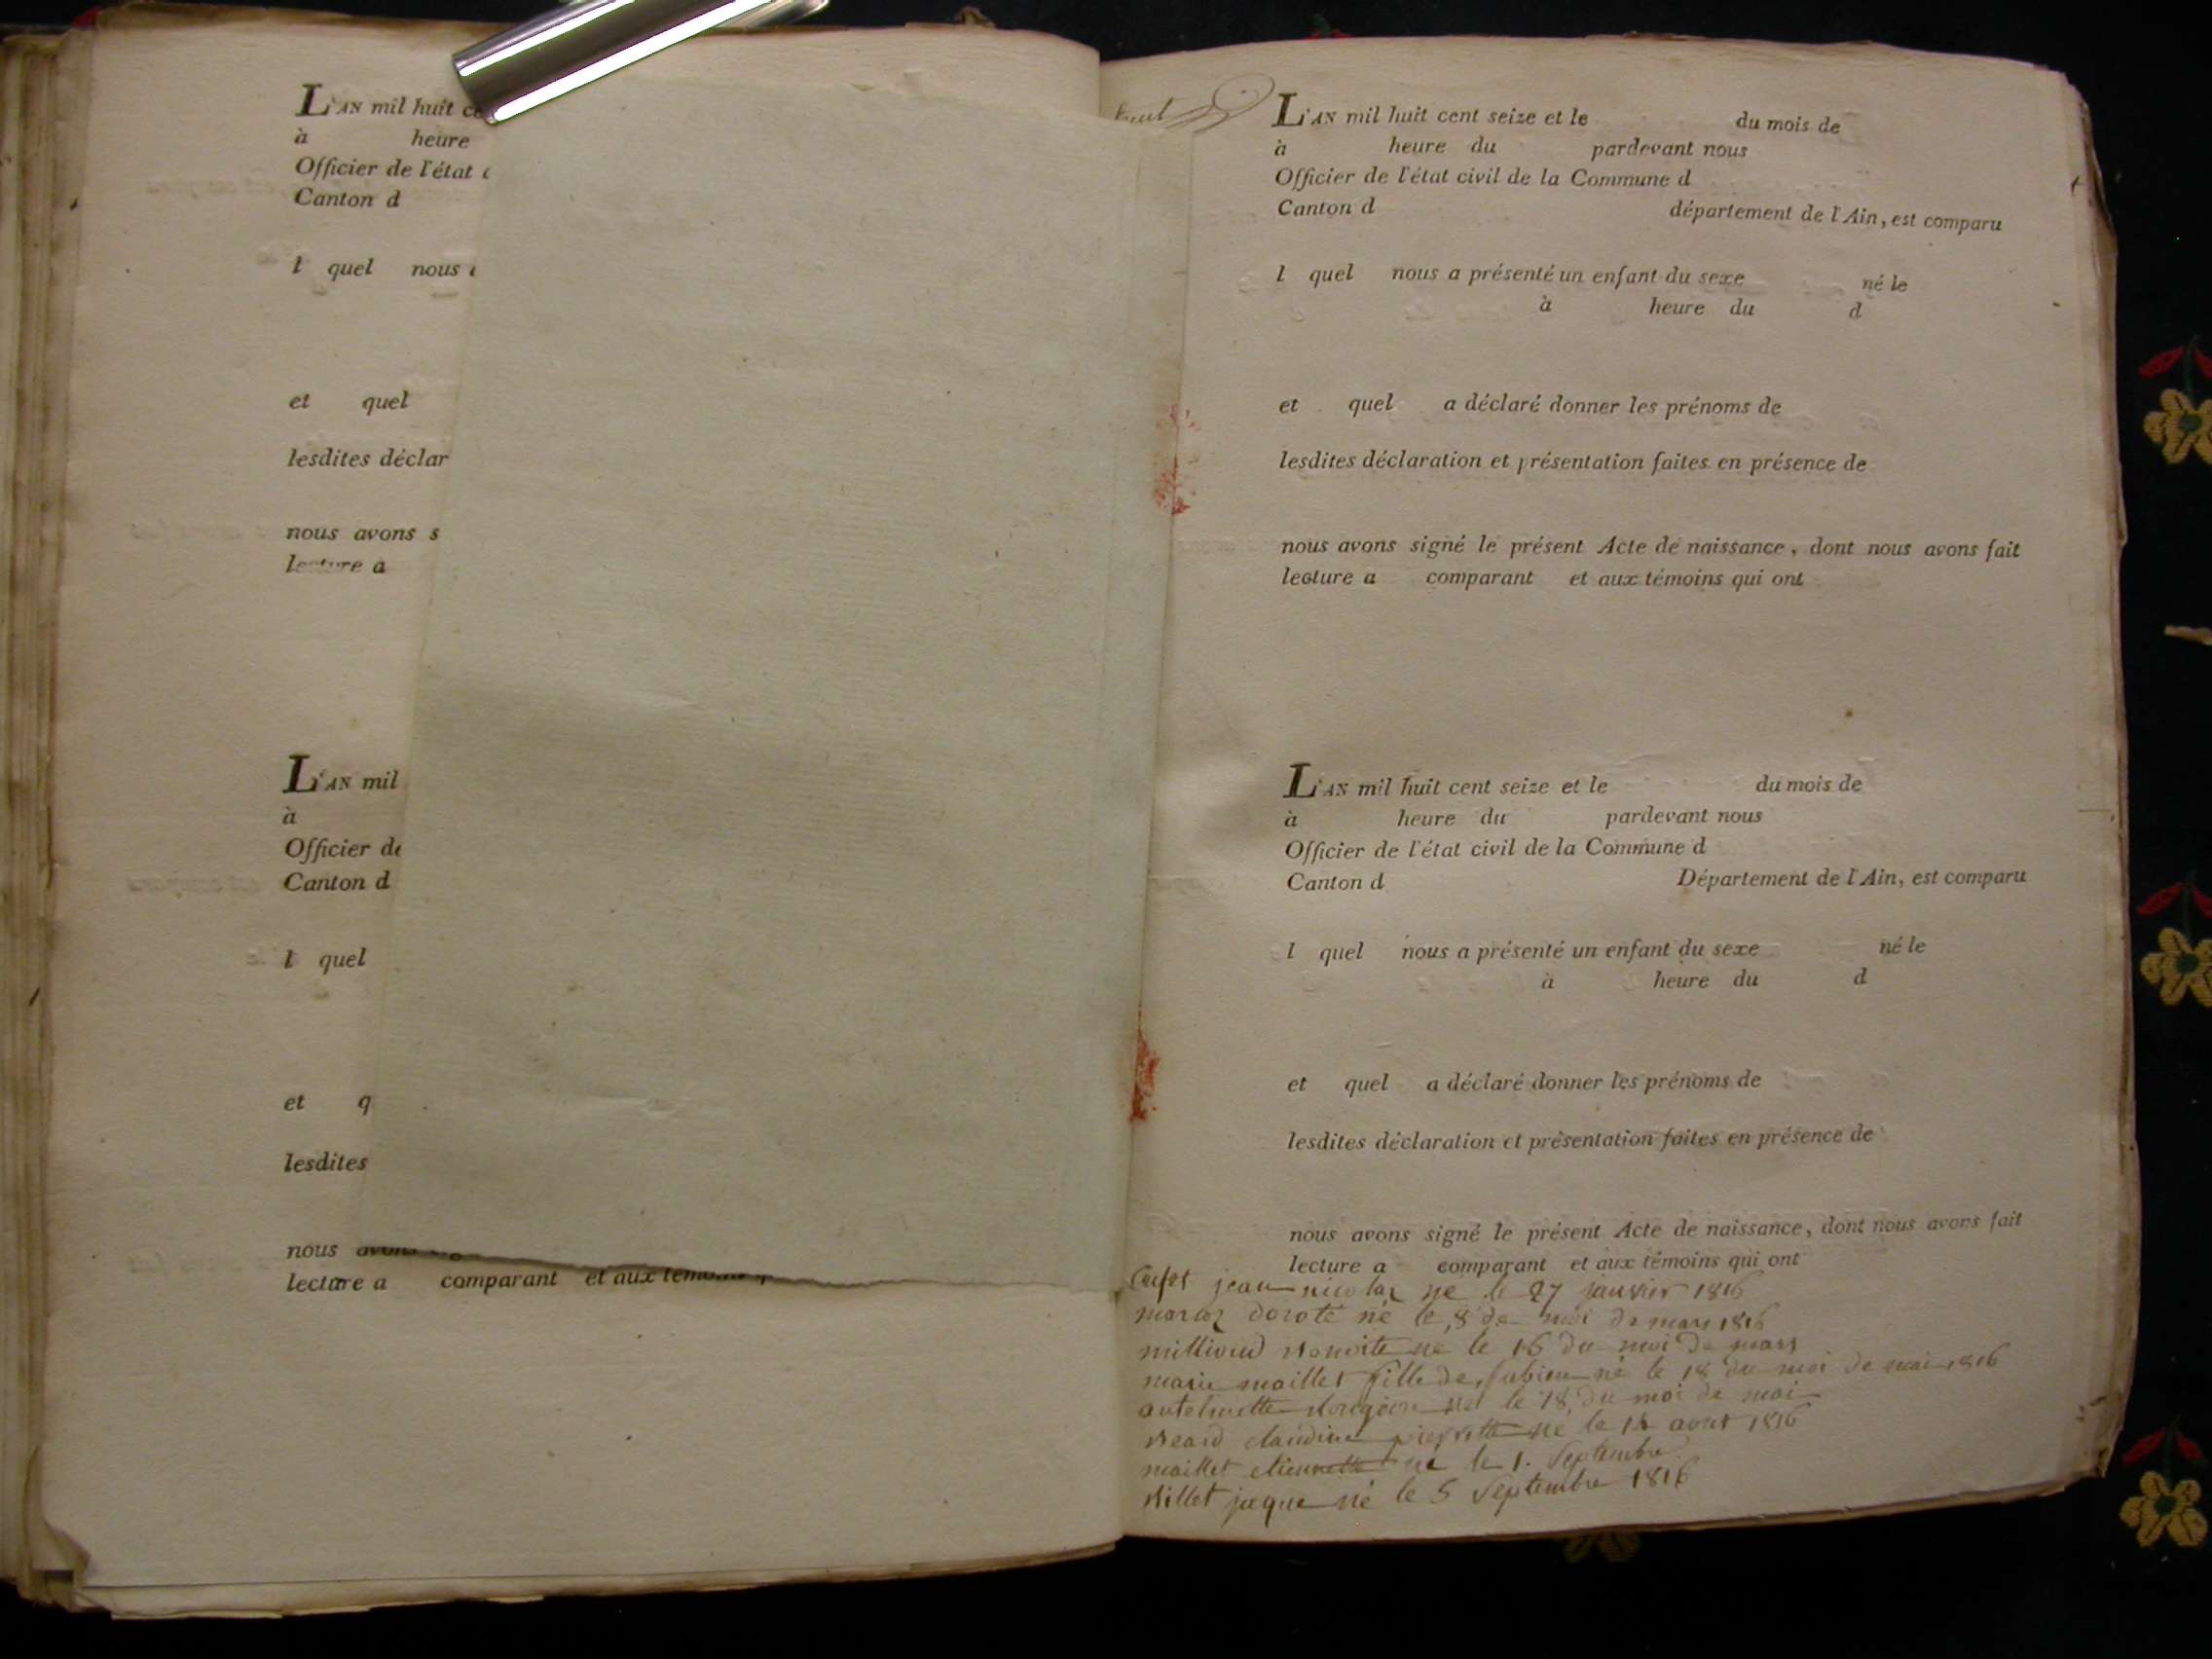 L'AN mil huit ce
à heure
Officier de l'état c
Canton d
l quel nous a
et quel
lesdites déclar
nous avons s
lecture a
L'AN mil
à
Officier de
Canton d
l quel
et q
lesdites
nous avons
lecture a comparant et aux témoins q
L'AN mil huit cent seize et le du mois de
à heure du pardevant nous
Officier de l'état civil de la Commune d
Canton d département de l'Ain, est comparu
l quel nous a présenté un enfant du sexe né le
à heure du d
et quel a déclaré donner les prénoms de
lesdites déclaration et présentation faites en présence de
nous avons signé le présent Acte de naissance, dont nous avons fait
lecture a comparant et aux témoins qui ont
L'AN mil huit cent seize et le du mois de
à heure du pardevant nous
Officier de l'état civil de la Commune d
Canton d Département de l'Ain, est comparu
l quel nous a présenté un enfant du sexe né le
à heure du d
et quel a déclaré donner les prénoms de
lesdites déclaration et présentation faites en présence de
nous avons signé le présent Acte de naissance, dont nous avons fait
lecture a comparant et aux témoins qui ont
jean nicolas ne le 27 janvier 1816
doroté né le 8 de moi de mars 1816
ne le 16 du moi de mars
marie maillet fille de fabien né le 18 du moi de mai 1816
le 18 du moi de mai
claudine pierrette né le aout 1816
maillet etiennette ne le 1. Septembre
jaque né le 5 Septembre 1816